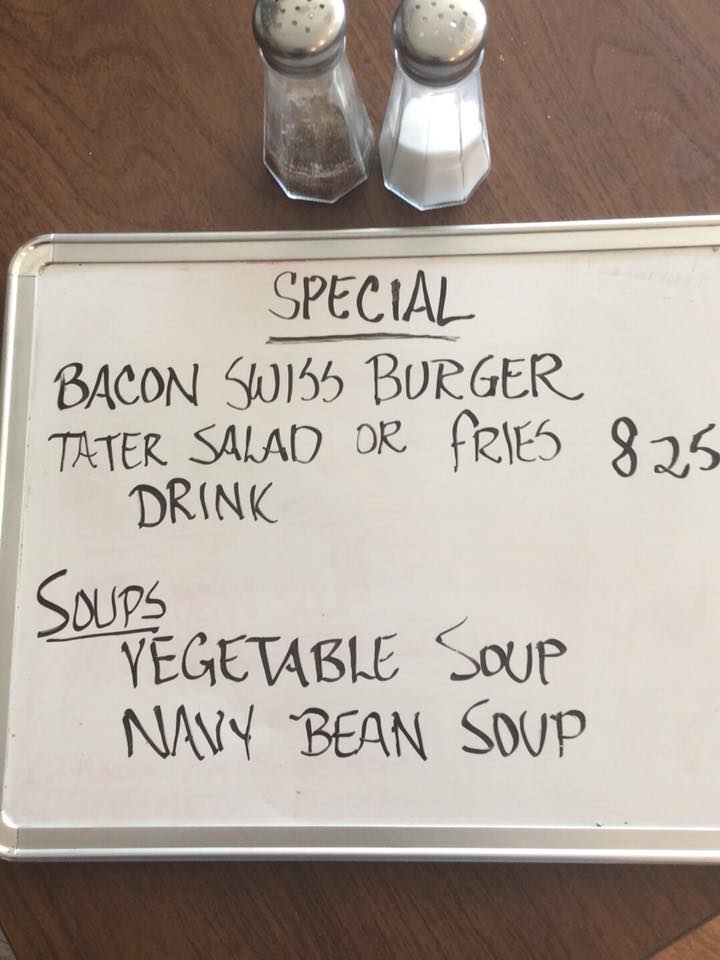 SPECIAL
BACON SWISS BURGER
TATER SALAD OR FRIES 825
DRINK
SOUPS
VEGETABLE SOUP
NAVY BEAN SOUP